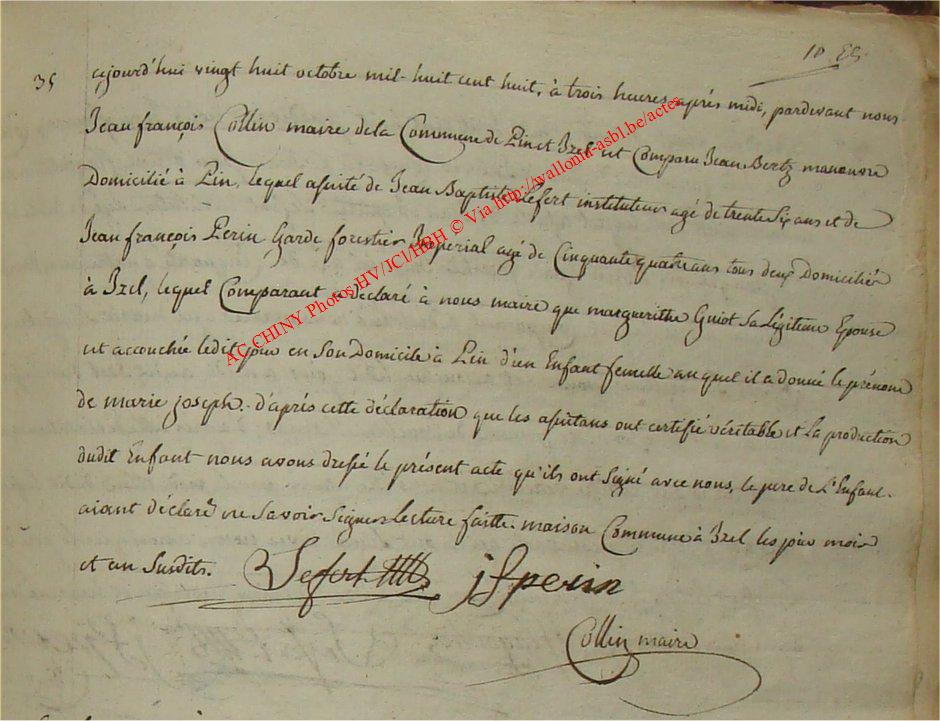 18 
35 cejourd'hui vingt huit octobre mil-huit cent huit, à trois heures après midi, pardevant nous
Jean françois Collin maire dela Commune de Pin et Izel est Comparu Jean Bertz manouvre
Domicilié à Pin, lequel assisté de Jean Baptiste Lefort instituteur agé de trente six ans et de
Jean françois Perin Garde forestier Imperial agé de Cinquante quatre ans tous deux Domiciliés
à Izel, lequel Comparant a déclaré à nous maire que marguerithe Guiot Sa Légitime Epouse
est accouchée ledit jour en Son Domicile à Pin d'un Enfant femelle auquel il a donné le prénom
de marie joseph. d'après cette déclaration que les assistans ont certifié véritable et la production
dudit Enfant nous avons dressé le présent acte qu'ils ont Signé avec nous, le pere de L'Enfant
aiant déclaré ne Savoir Signer Lecture faitte. maison Commune à Izel les jour mois
et an Susdits. Lefort jfperin
Collin maire
AC CHINY Photos HV/JCl/HBH © Via http://wallonia-asbl.be/actes